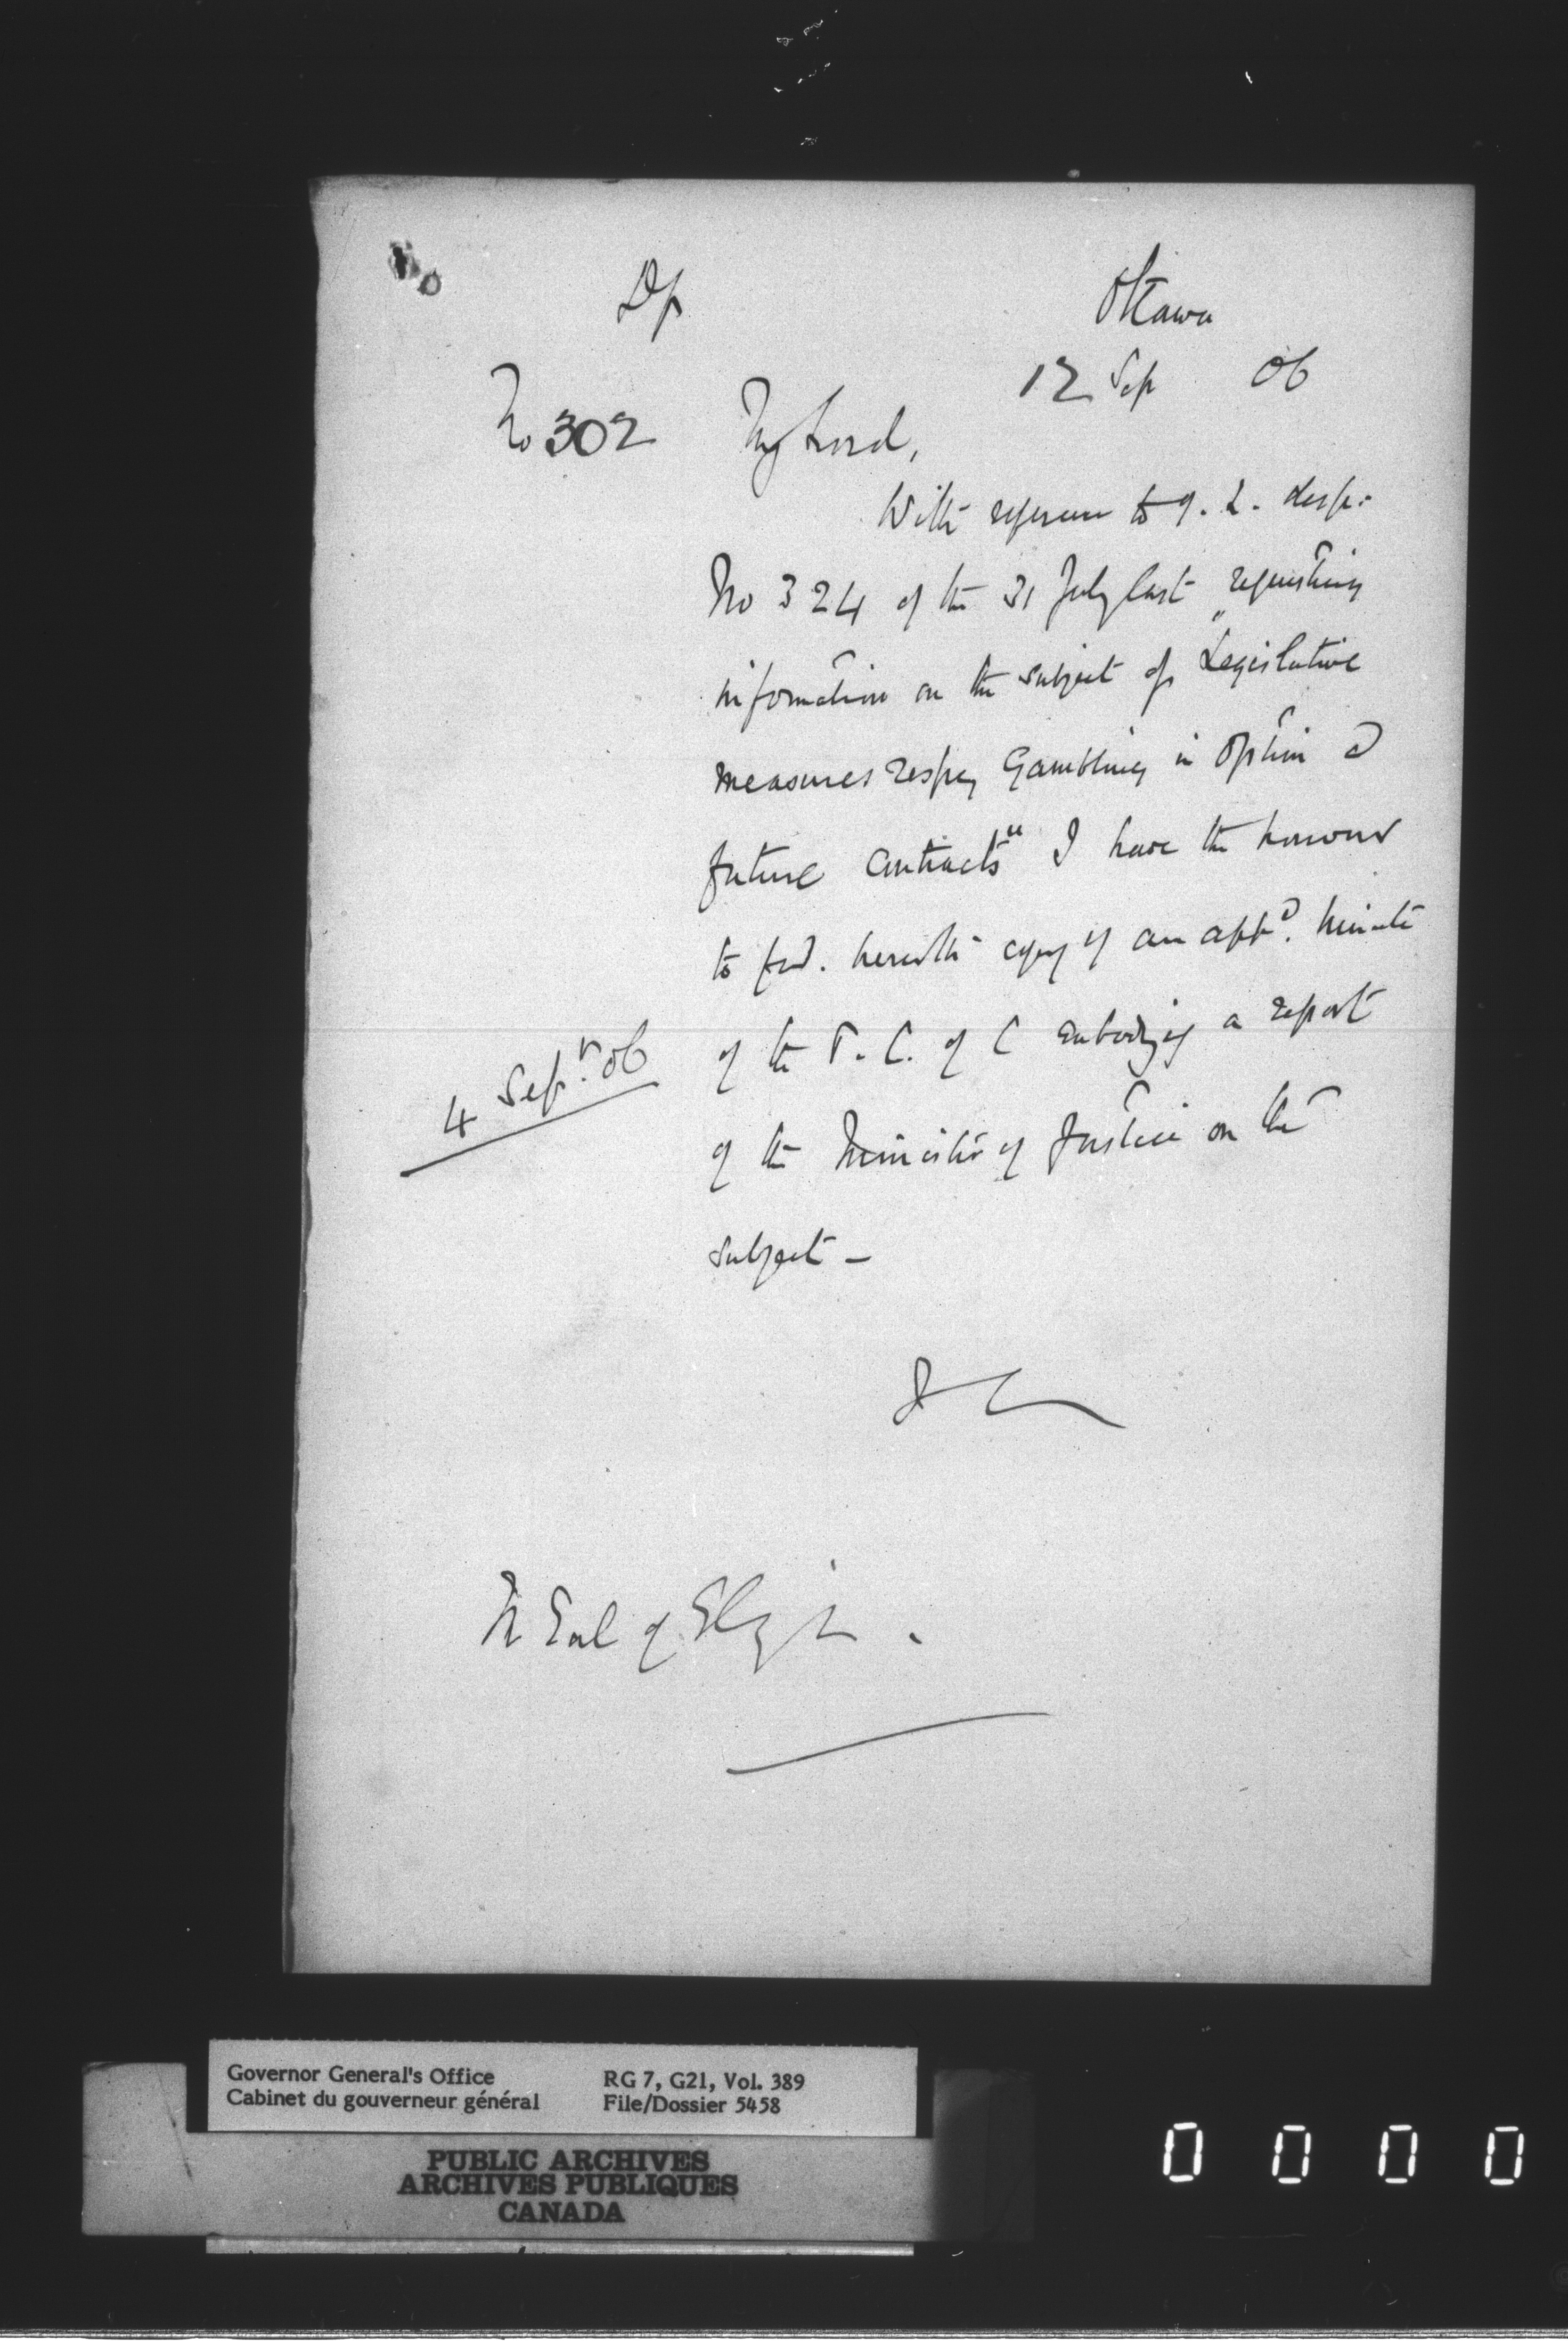 Df
Ottawa
12 Sep 06
No 302 My Lord,
With reference to y. L. desp.
No 324 of the 31 July last requesting
information on the subject of "Legislative
measures respg Gambling in Option &
future contracts" I have the honour
to fwd. herewith copy of an appd. Minute
of the P. C. of C embodying a report
4 Sepr. 06
of the Minister of Justice on the
subject —
The Earl of Elgin.
Governor General's Office
Cabinet du gouverneur général
RG 7, G21, Vol. 389
File/Dossier 5458
PUBLIC ARCHIVES
ARCHIVES PUBLIQUES
CANADA
0 0 0 0